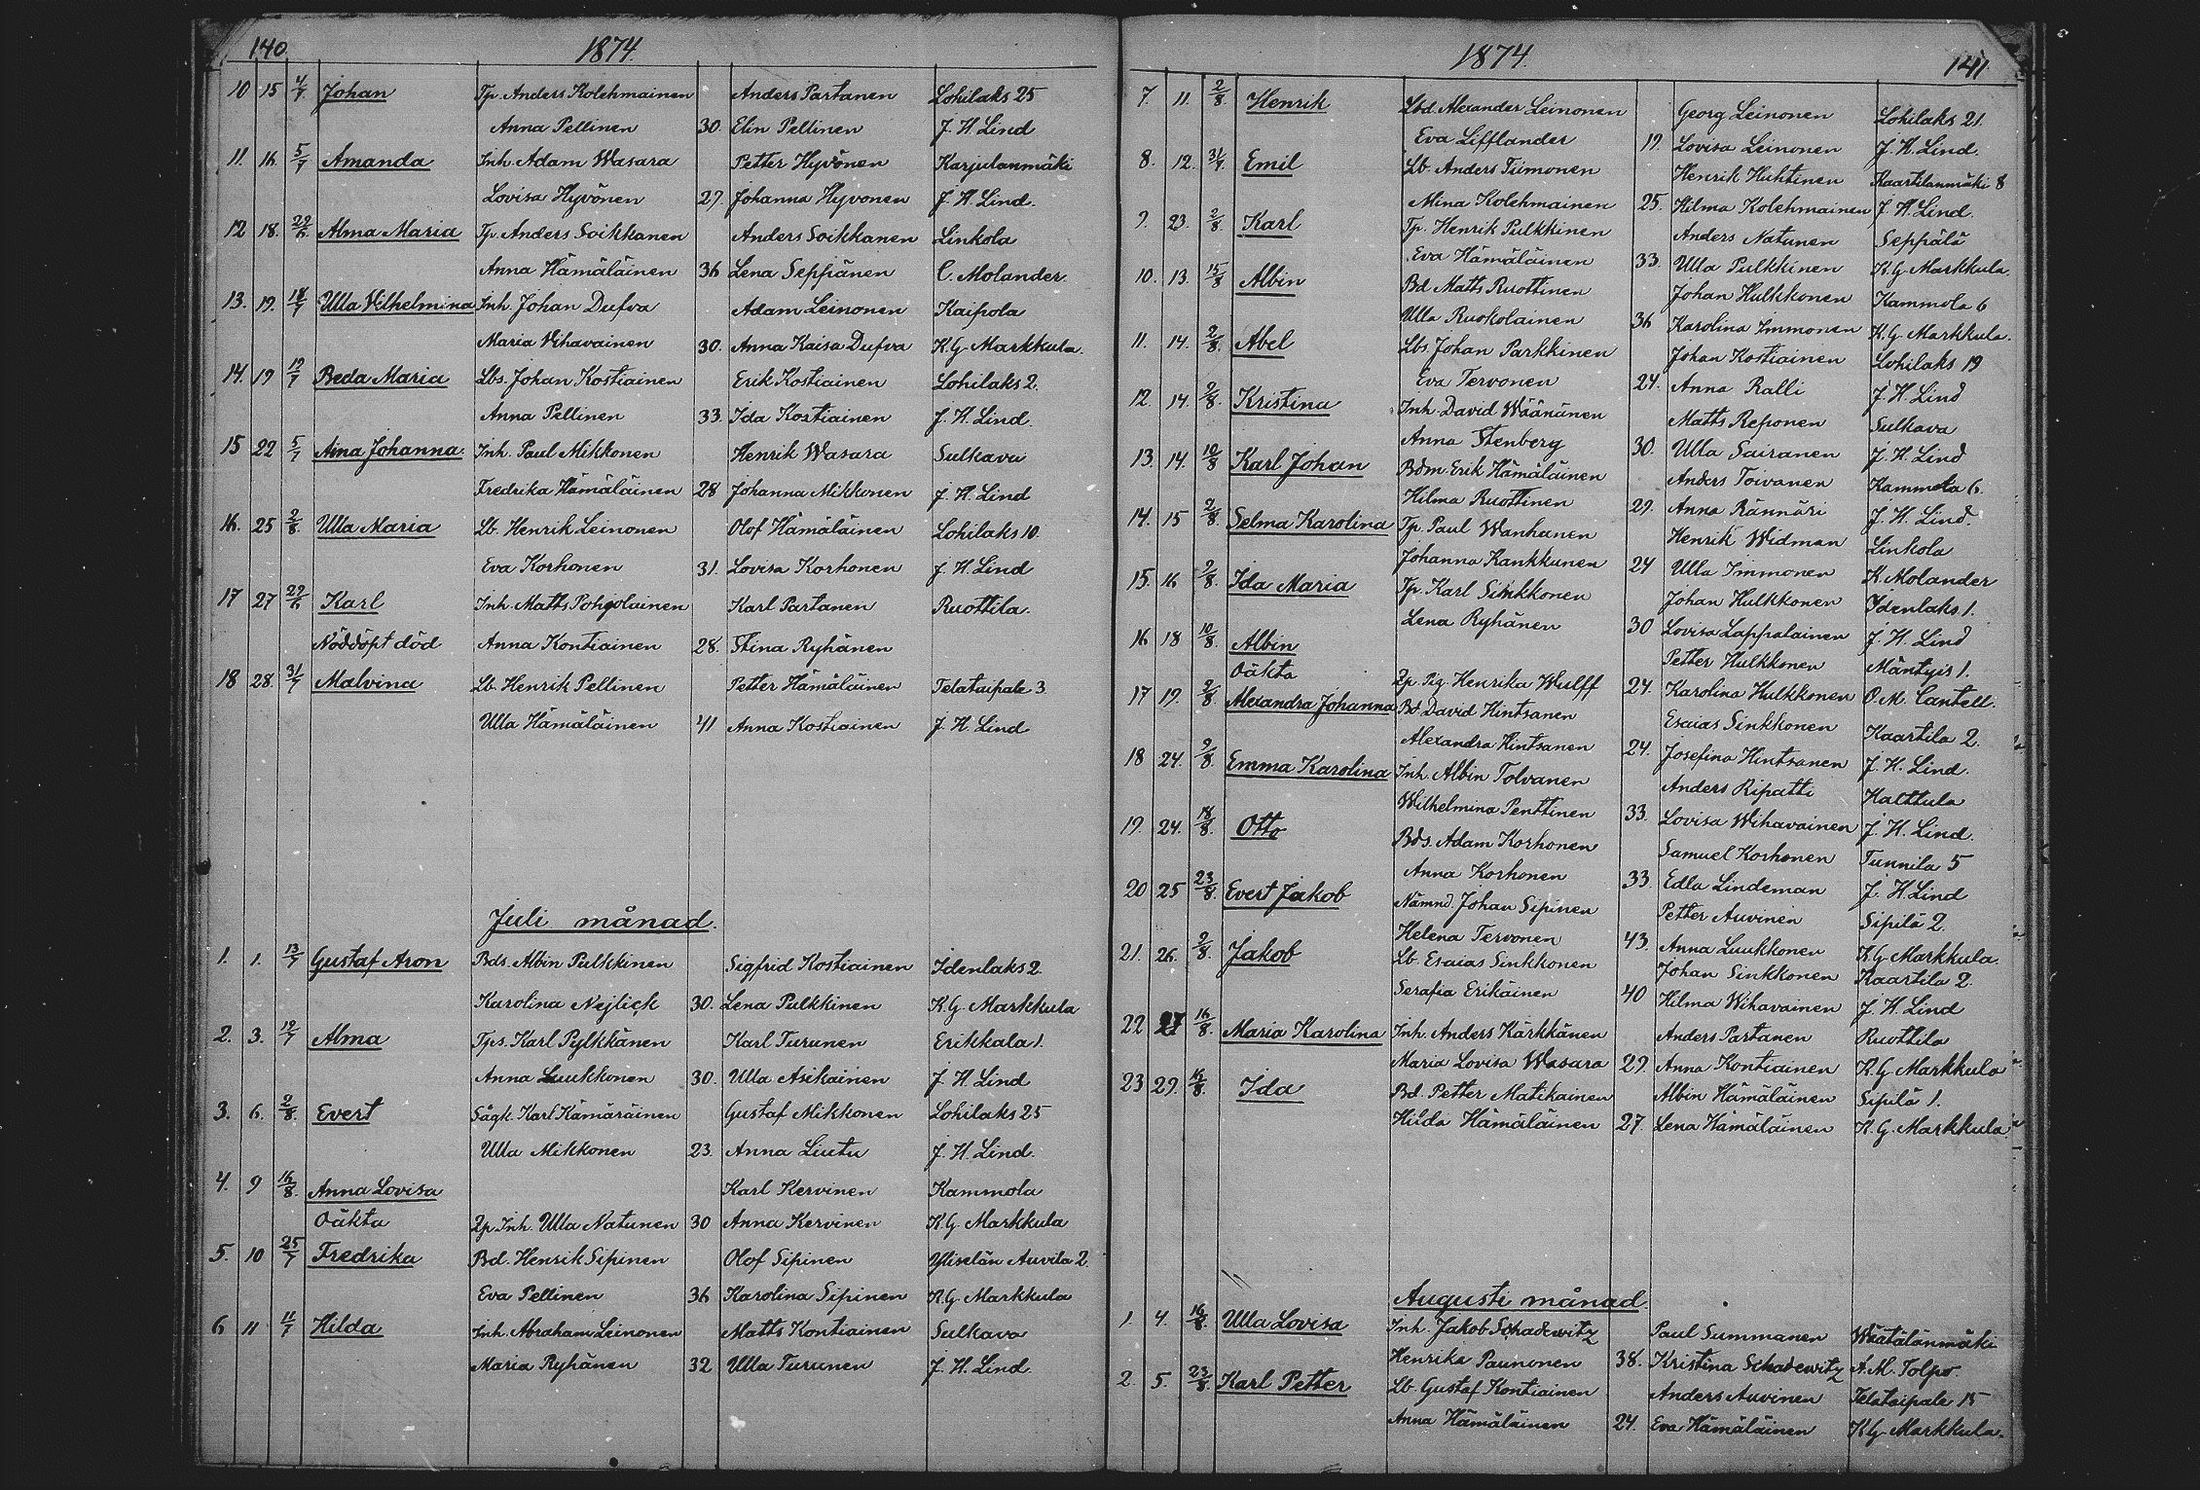 140. 1874.
10 15 4/7 Johan Tp. Anders Kolehmainen Anders Partanen Lohilaks 25
Anna Pellinen 30. Elin Pellinen J. H. Lind
11. 16. 5/7 Amanda Inh. Adam Wasara Petter Hyvönen Karjulanmäki
Lovisa Hyvönen 27. Johanna Hyvönen J. H. Lind.
12 18. 29/6 Alma Maria Tp. Anders Soikkanen Anders Soikkanen Linkola
Anna Hämäläinen 36 Lena Seppänen C. Molander.
13. 19. 18/7 Ulla Vilhelmina Inh. Johan Dufva Adam Leinonen Kaipola
Maria Vihavainen 30. Anna Kaisa Dufva K. G. Markkula.
14. 19 19/7 Beda Maria Lbs. Johan Kostiainen Erik Kostiainen Lohilaks 2.
Anna Pellinen 33. Ida Kostiainen J. H. Lind.
15 22 5/7 Aina Johanna. Inh. Paul Mikkonen Henrik Wasara Sulkava
Fredrika Hämäläinen 28 Johanna Mikkonen J. H. Lind
16. 25 2/8. Ulla Maria Lb. Henrik Leinonen Olof Hämäläinen Lohilaks 10.
Eva Korhonen 31. Lovisa Korhonen J. H. Lind
17 27 29/6 Karl Inh. Matts Pohjolainen Karl Partanen Ruottila.
Nöddöpt död Anna Kontiainen 28. Stina Ryhänen
18 28. 31/7 Malvina Lb. Henrik Pellinen Petter Hämäläinen Telataipale 3
Ulla Hämäläinen 41 Anna Kostiainen J. H. Lind
Juli månad.
1. 1. 13/7 Gustaf Aron Bds. Albin Pulkkinen Sigfrid Kostiainen Idenlaks 2
Karolina Nejlick 30. Lena Pulkkinen K. G. Markkula
2. 3. 19/7 Alma Tps. Karl Pylkkänen Karl Turunen Erikkala 1.
Anna Luukkonen 30. Ulla Asikainen J. H. Lind
3. 6. 2/8. Evert Sågk. Karl Kämäräinen Gustaf Mikkonen Lohilaks 25
Ulla Mikkonen 23. Anna Liutu J. H. Lind.
4. 9 16/8. Anna Lovisa Karl Kervinen Kammola
Oäkta Qp. Inh. Ulla Natunen 30 Anna Kervinen K. G. Markkula
5. 10 25/7 Fredrika Bd. Henrik Sipinen Olof Sipinen Yliselän Auvila 2.
Eva Pellinen 36 Karolina Sipinen K. G. Markkula
6 11 11/7 Hilda Inh. Abraham Leinonen Matts Kontiainen Sulkava
Maria Ryhänen 32 Ulla Turunen J. H. Lind.
1874. 141
7. 11. 2/8. Henrik Lbd Alexander Leinonen Georg Leinonen Lohilaks 21.
Eva Lifflander 19. Lovisa Leinonen J. H. Lind.
8. 12. 31/7. Emil Lb. Anders Tiimonen Henrik Huhtinen Kaartilanmäki 8
Mina Kolehmainen 25. Hilma Kolehmainen J. H. Lind.
9. 23. 2/8. Karl Tp. Henrik Pulkkinen Anders Natunen Seppälä
Eva Hämäläinen 33. Ulla Pulkkinen K. G. Markkula.
10. 13. 15/8 Albin Bd Matts Ruottinen Johan Hulkkonen Kammola 6
Ulla Ruokolainen 36 Karolina Immonen K. G. Markkula.
11. 14. 2/8. Abel Lbs. Johan Parkkinen Johan Kostiainen Lohilaks 19
Eva Tervonen 24. Anna Ralli J. H. Lind
12. 14. 2/8. Kristina Inh. David Väänänen Matts Reponen Sulkava
Anna Stenberg 30. Ulla Sairanen J. H. Lind
13. 14. 10/8 Karl Johan Bdm. Erik Hämäläinen Anders Toivanen Kammola 6.
Hilma Ruottinen 29. Anna Rännäri J. H. Lind.
14. 15 2/8. Selma Karolina Tp. Paul Wanhanen Henrik Widman Linkola
Johanna Kankkunen 24 Ulla Immonen K. Molander
15. 16 2/8. Ida Maria Tp. Karl Sinkkonen Johan Hulkkonen Idenlaks 1.
Lena Ryhänen 30 Lovisa Lappalainen J. H. Lind
16 18 10/8. Albin Petter Hulkkonen Mäntyis 1.
Oäkta Qp. Pig. Henrika Wulff 24. Karolina Hulkkonen O. M. Cantell.
17 19. 2/8. Alexandra Johanna Bd. David Hintsanen Esaias Sinkkonen Kaartila 2.
Alexandra Hintsanen 24. Josefina Hintsanen J. H. Lind.
18 24. 2/8. Emma Karolina Inh. Albin Tolvanen Anders Ripatti Halttula
Wilhelmina Penttinen 33. Lovisa Wihavainen J. H. Lind.
19. 24. 18/8. Otto Bds. Adam Korhonen Samuel Korhonen Tunnila 5
Anna Korhonen 33. Edla Lindeman J. H. Lind
20 25 23/8. Evert Jakob Nämnd. Johan Sipinen Petter Auvinen Sipilä 2.
Helena Tervonen 43. Anna Luukkonen K. G. Markkula.
21. 26. 2/8. Jakob Lb. Esaias Sinkkonen Johan Sinkkonen Kaartila 2.
Serafia Erikäinen 40 Hilma Wihavainen J. H. Lind
22 27 16/8. Maria Karolina Inh. Anders Kärkkänen Anders Partanen Ruottila
Maria Lovisa Wasara 29. Anna Kontiainen K. G. Markkula
23 29. 16/8. Ida Bd. Petter Matikainen Albin Hämäläinen Sipilä 1.
Hilda Hämäläinen 27. Lena Hämäläinen K. G. Markkula.
Augusti månad.
1. 4. 16/8. Ulla Lovisa Inh. Jakob Schadewitz Paul Summanen Väätälänmäki
Henrika Paunonen 38. Kristina Schadewitz A. M. Tolpo.
2. 5. 23/8. Karl Petter Lb. Gustaf Kontiainen Anders Auvinen Telataipale 15
Anna Hämäläinen 24. Eva Hämäläinen K. G. Markkula.